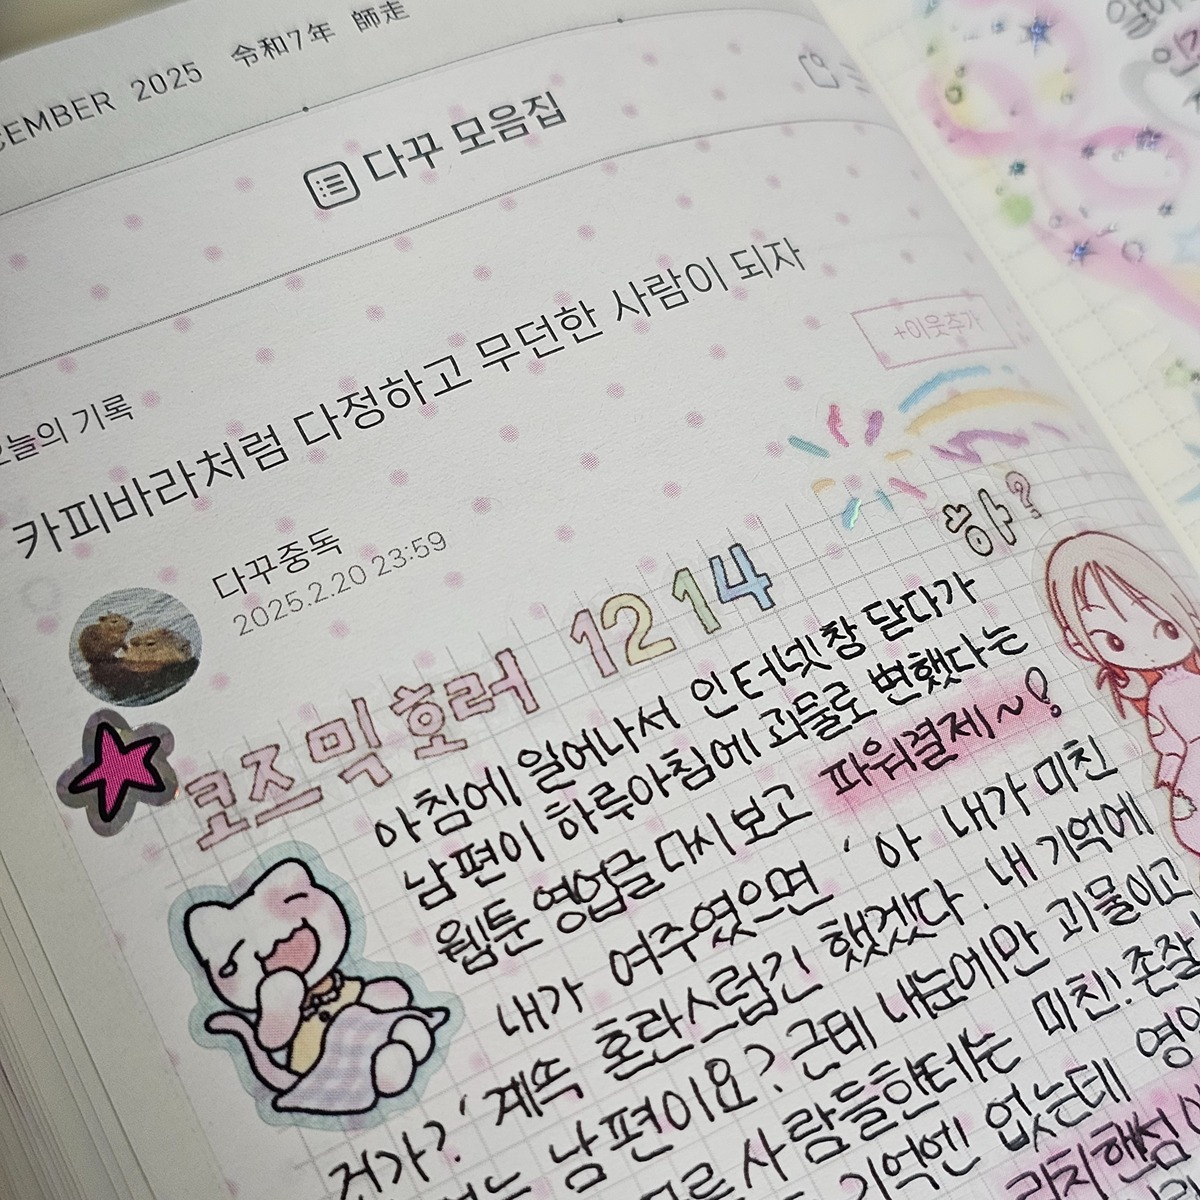 CEMBER 2025 令和7年 師走
다꾸 모음집
오늘의 기록
카피바라처럼 다정하고 무던한 사람이 되자
+이웃추가
다꾸중독
2025.2.20 23:59
코즈믹 호러 1214
하?
아침에 일어나서 인터넷창 닫다가
남편이 하루아침에 괴물로 변했다는
웹툰 영업글 다시 보고 파워결제~!
내가 여주였으면 '아 내가 미친
건가?' 계쏙 혼란스럽긴 했겠다. 내 기억에
남편이요? 근데 내눈에만 괴물이고
사람들한테는 미친! 존잘
기억엔 없는데